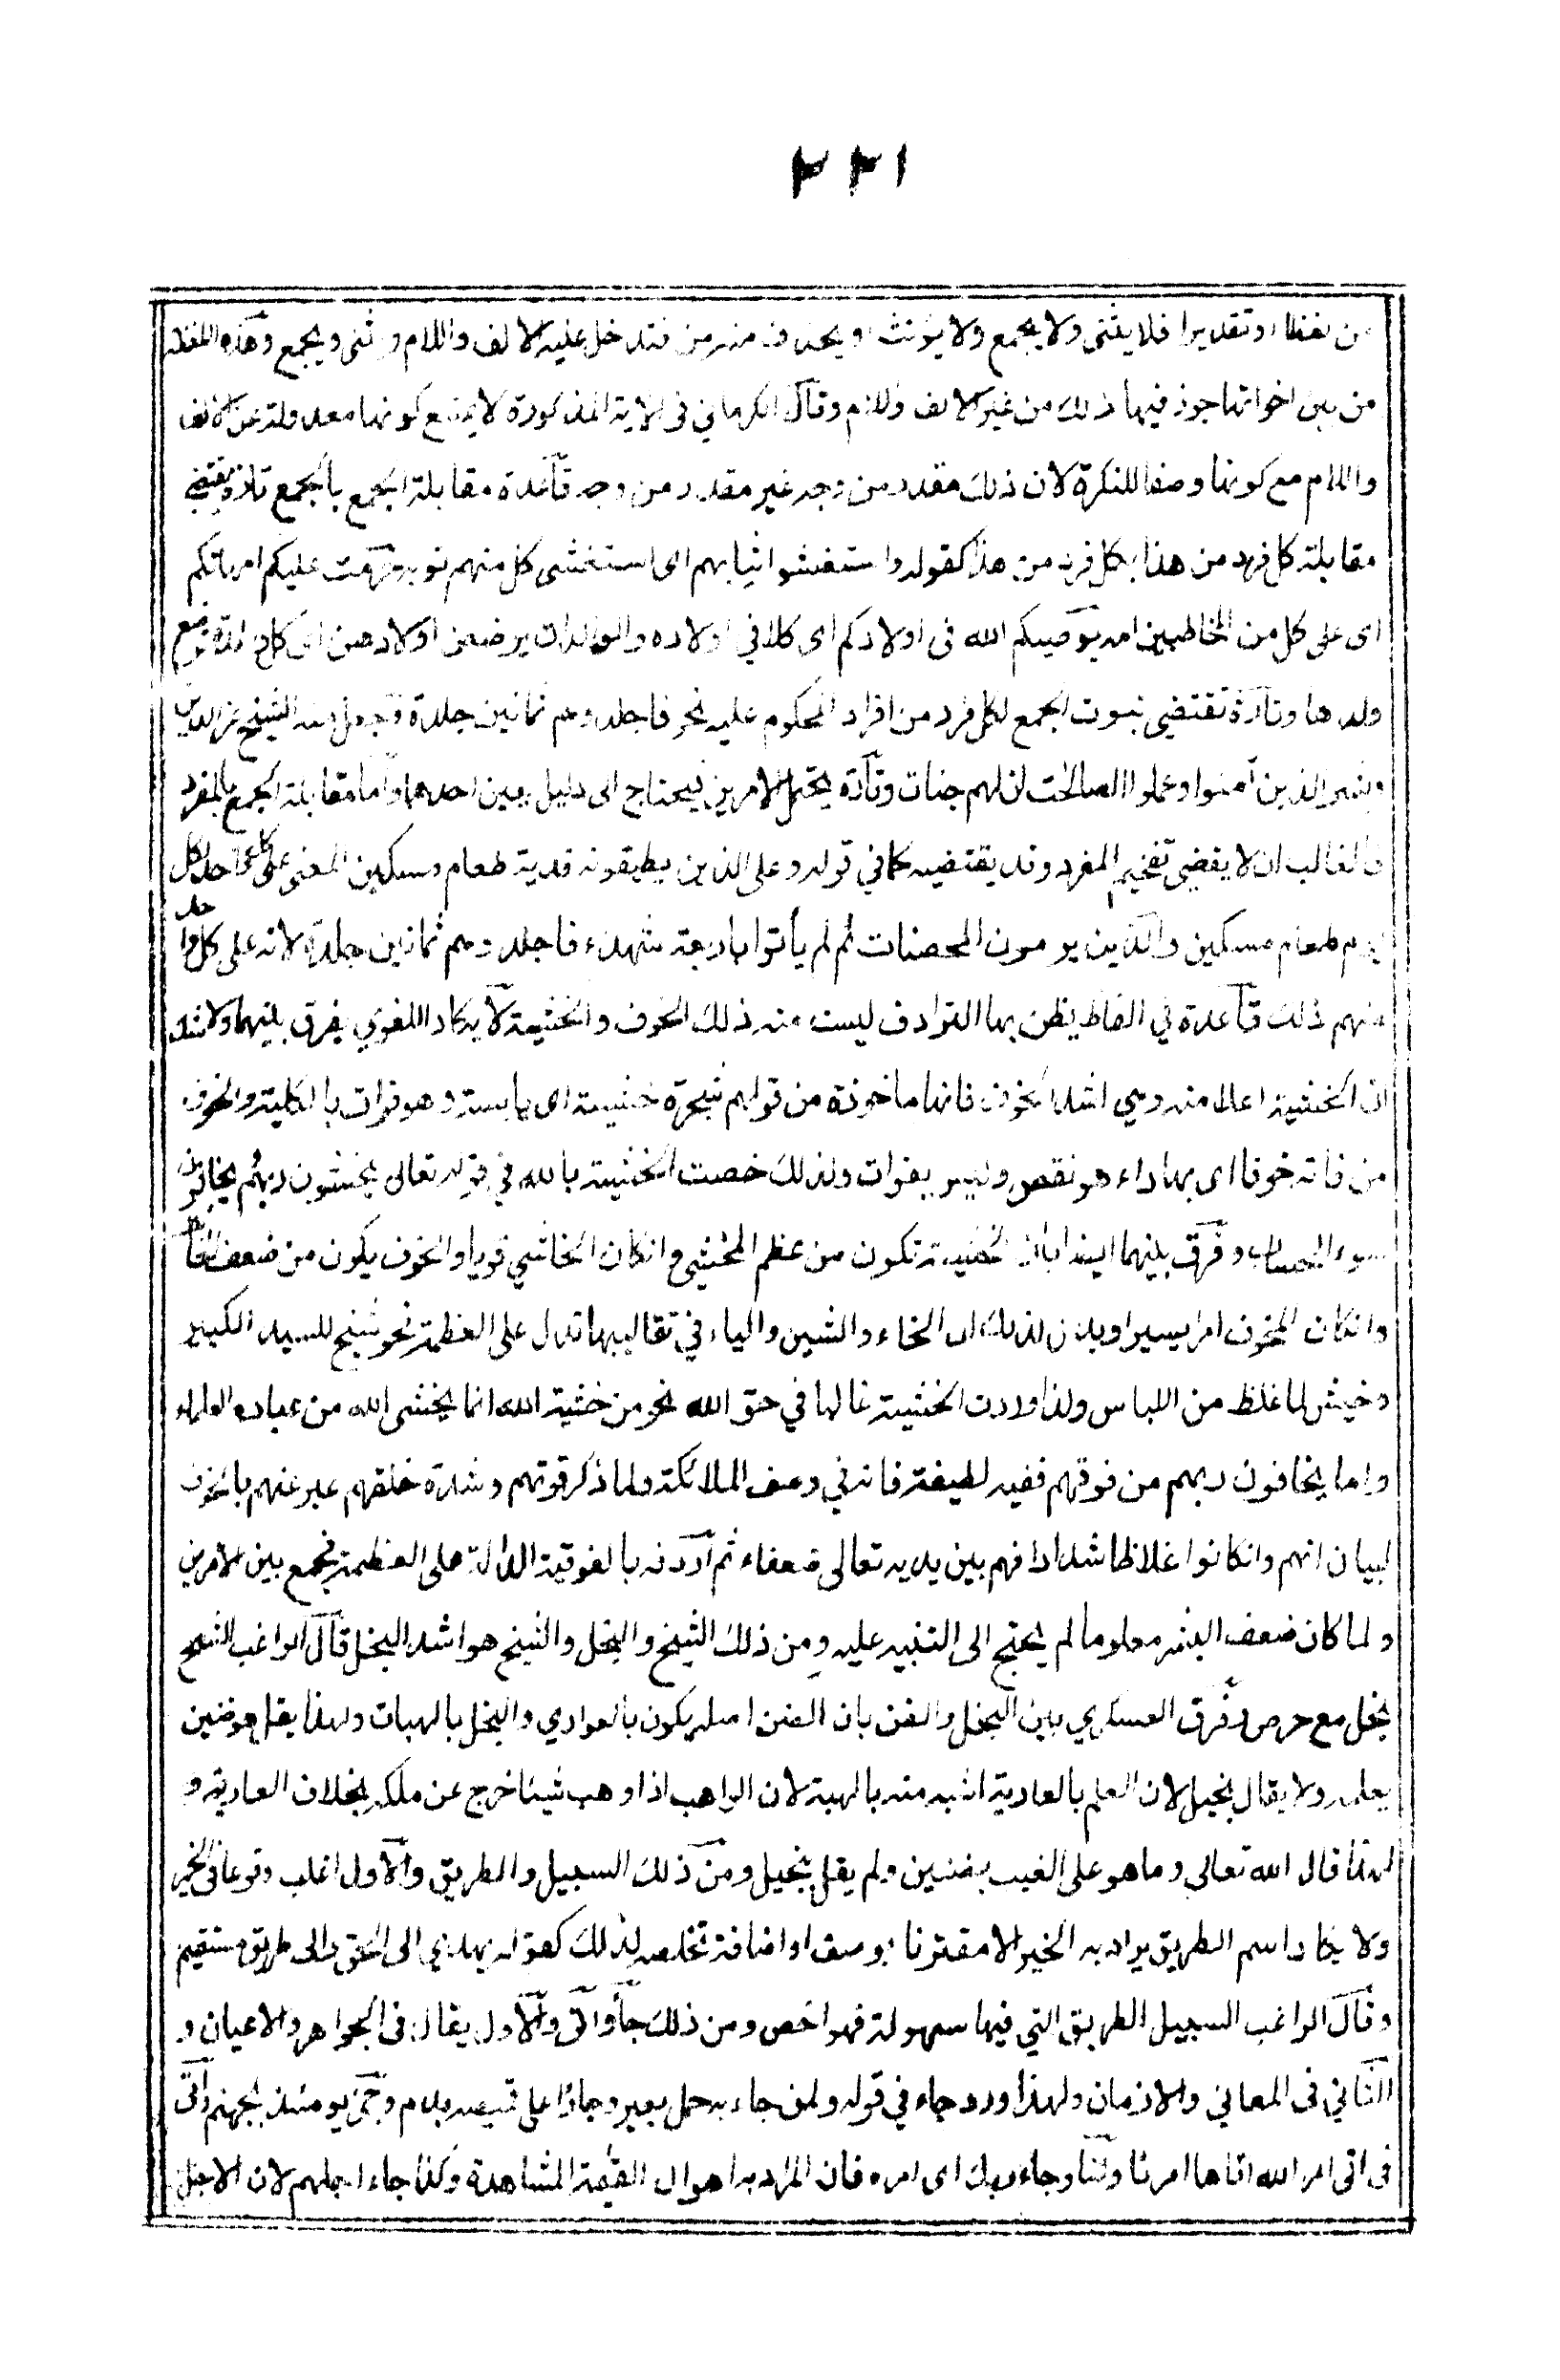 ٢٢١
من لفظا او تقديرا فلا يثنى ولا يجمع ولا يؤنث او يحذف منه من فتدخل عليه الالف واللام و ثنى و يجمع وهذه اللفظة
من بين اخواتها جوز فيها ذلك من غير الالف واللام وقال الكرماني فى الاية المذكورة لا يمتنع كونها معدولة عن الالف
واللام مع كونها وصفا للنكرة لان ذلك مقدر من وجه غير مقدر من وجه قاعدة مقابلة الجمع بالجمع تارة تقتضي
مقابلة كل فرد من هذا بكل فرد من هذا كقوله واستغشوا ثيابهم اى استغشى كل منهم ثوبه حرمت عليكم امهاتكم
اى على كل من المخاطبين امه يوصيكم الله فى اولادكم اى كلا في اولاده والوالدات يرضعن اولادهن اى كل والدة ترضع
ولدها وتارة تقتضي ثبوت الجمع لكل فرد من افراد المحكوم عليه نحو فاجلدوهم ثمانين جلدة وجعل منه الشيخ عز الدين
وبشر الذين آمنوا وعملوا الصالحت ان لهم جنات وتارة يحتمل الامرين فيحتاج الى دليل يعين احدهما واما مقابلة الجمع بالمفرد
فالغالب ان لا يقضي تفخيم المفرد وقد يقتضيه كما في قوله وعلى الذين يطيقونه فدية طعام مسكين المعنى على كل واحد لكل
يوم طعام مسكين والذين يرمون المحصنات ثم لم يأتوا باربعة شهداء فاجلدوهم ثمانين جلدة لانه على كل واحد
منهم ذلك قاعدة في الفاظ يظن بها الترادف ليست منه ذلك الخوف والخشية لا يكاد اللغوي يفرق بينهما ولا شك
ان الخشية اعلا منه وهي اشد الخوف فانها ماخوذة من قولهم شجرة خشية اى يابسة وهو فوات بالكلية والخوف
من ناقة خوفا اى بها داء هو نقص وليس بفوات ولذلك خصت الخشية بالله في قوله تعالى يخشون ربهم ويخافون
سوء الحساب وفرق بينهما ايضا بان الخشية تكون من عظم المخشي وان كان الخاشي قويا والخوف يكون من ضعف الخائف
وان كان المخوف امرا يسيرا ويدل لذلك ان الخاء والشين والياء في تقاليبها تدل على العظمة نحو شيخ للسيد الكبير
وخيش لما غلظ من اللباس ولذا وردت الخشية غالبا في حق الله نحو من خشية الله انما يخشى الله من عباده العلماء
واما يخافون ربهم من فوقهم ففيه لطيفة فانه في وصف الملائكة ولما ذكر قوتهم وشدة خلقهم عبر عنهم بالخوف
لبيان انهم وان كانوا غلاظا شدادا فهم بين يديه تعالى ضعفاء ثم اردفه بالفوقية الدالة على العظمة فجمع بين الامرين
ولما كان ضعف البشر معلوما لم يحتج الى التنبيه عليه ومن ذلك الشح والبخل والشح هو اشد البخل قال الراغب الشح
بخل مع حرص وفرق العسكري بين البخل والضن بان الضن اصله يكون بالعواري والبخل بالهبات ولهذا يقال هو ضنين
بعلمه ولا يقال بخيل لان العلم بالعارية اشبه منه بالهبة لان الواهب اذا وهب شيئا خرج عن ملكه بخلاف العارية و
لهذا قال الله تعالى وما هو على الغيب بضنين ولم يقل بخيل ومن ذلك السبيل والطريق والاول اغلب وقوعا في الخير
ولا يكاد اسم الطريق يراد به الخير الا مقترنا بوصف او اضافة تخلصه لذلك كقوله يهدي الى الحق والى طريق مستقيم
وقال الراغب السبيل الطريق التي فيها سهولة فهو اخص ومن ذلك جاء واتى والاول يقال فى الجواهر والاعيان و
الثاني فى المعاني والازمان ولهذا ورد جاء في قوله ولمن جاء به حمل بعير وجاؤا على قميصه بدم وجئ يومئذ بجهنم واتى
فى اتى امر الله اتاها امرنا واما وجاء ربك اى امره فان المراد به اهوال القيمة المشاهدة وكذا جاء اجلهم لان الاجل